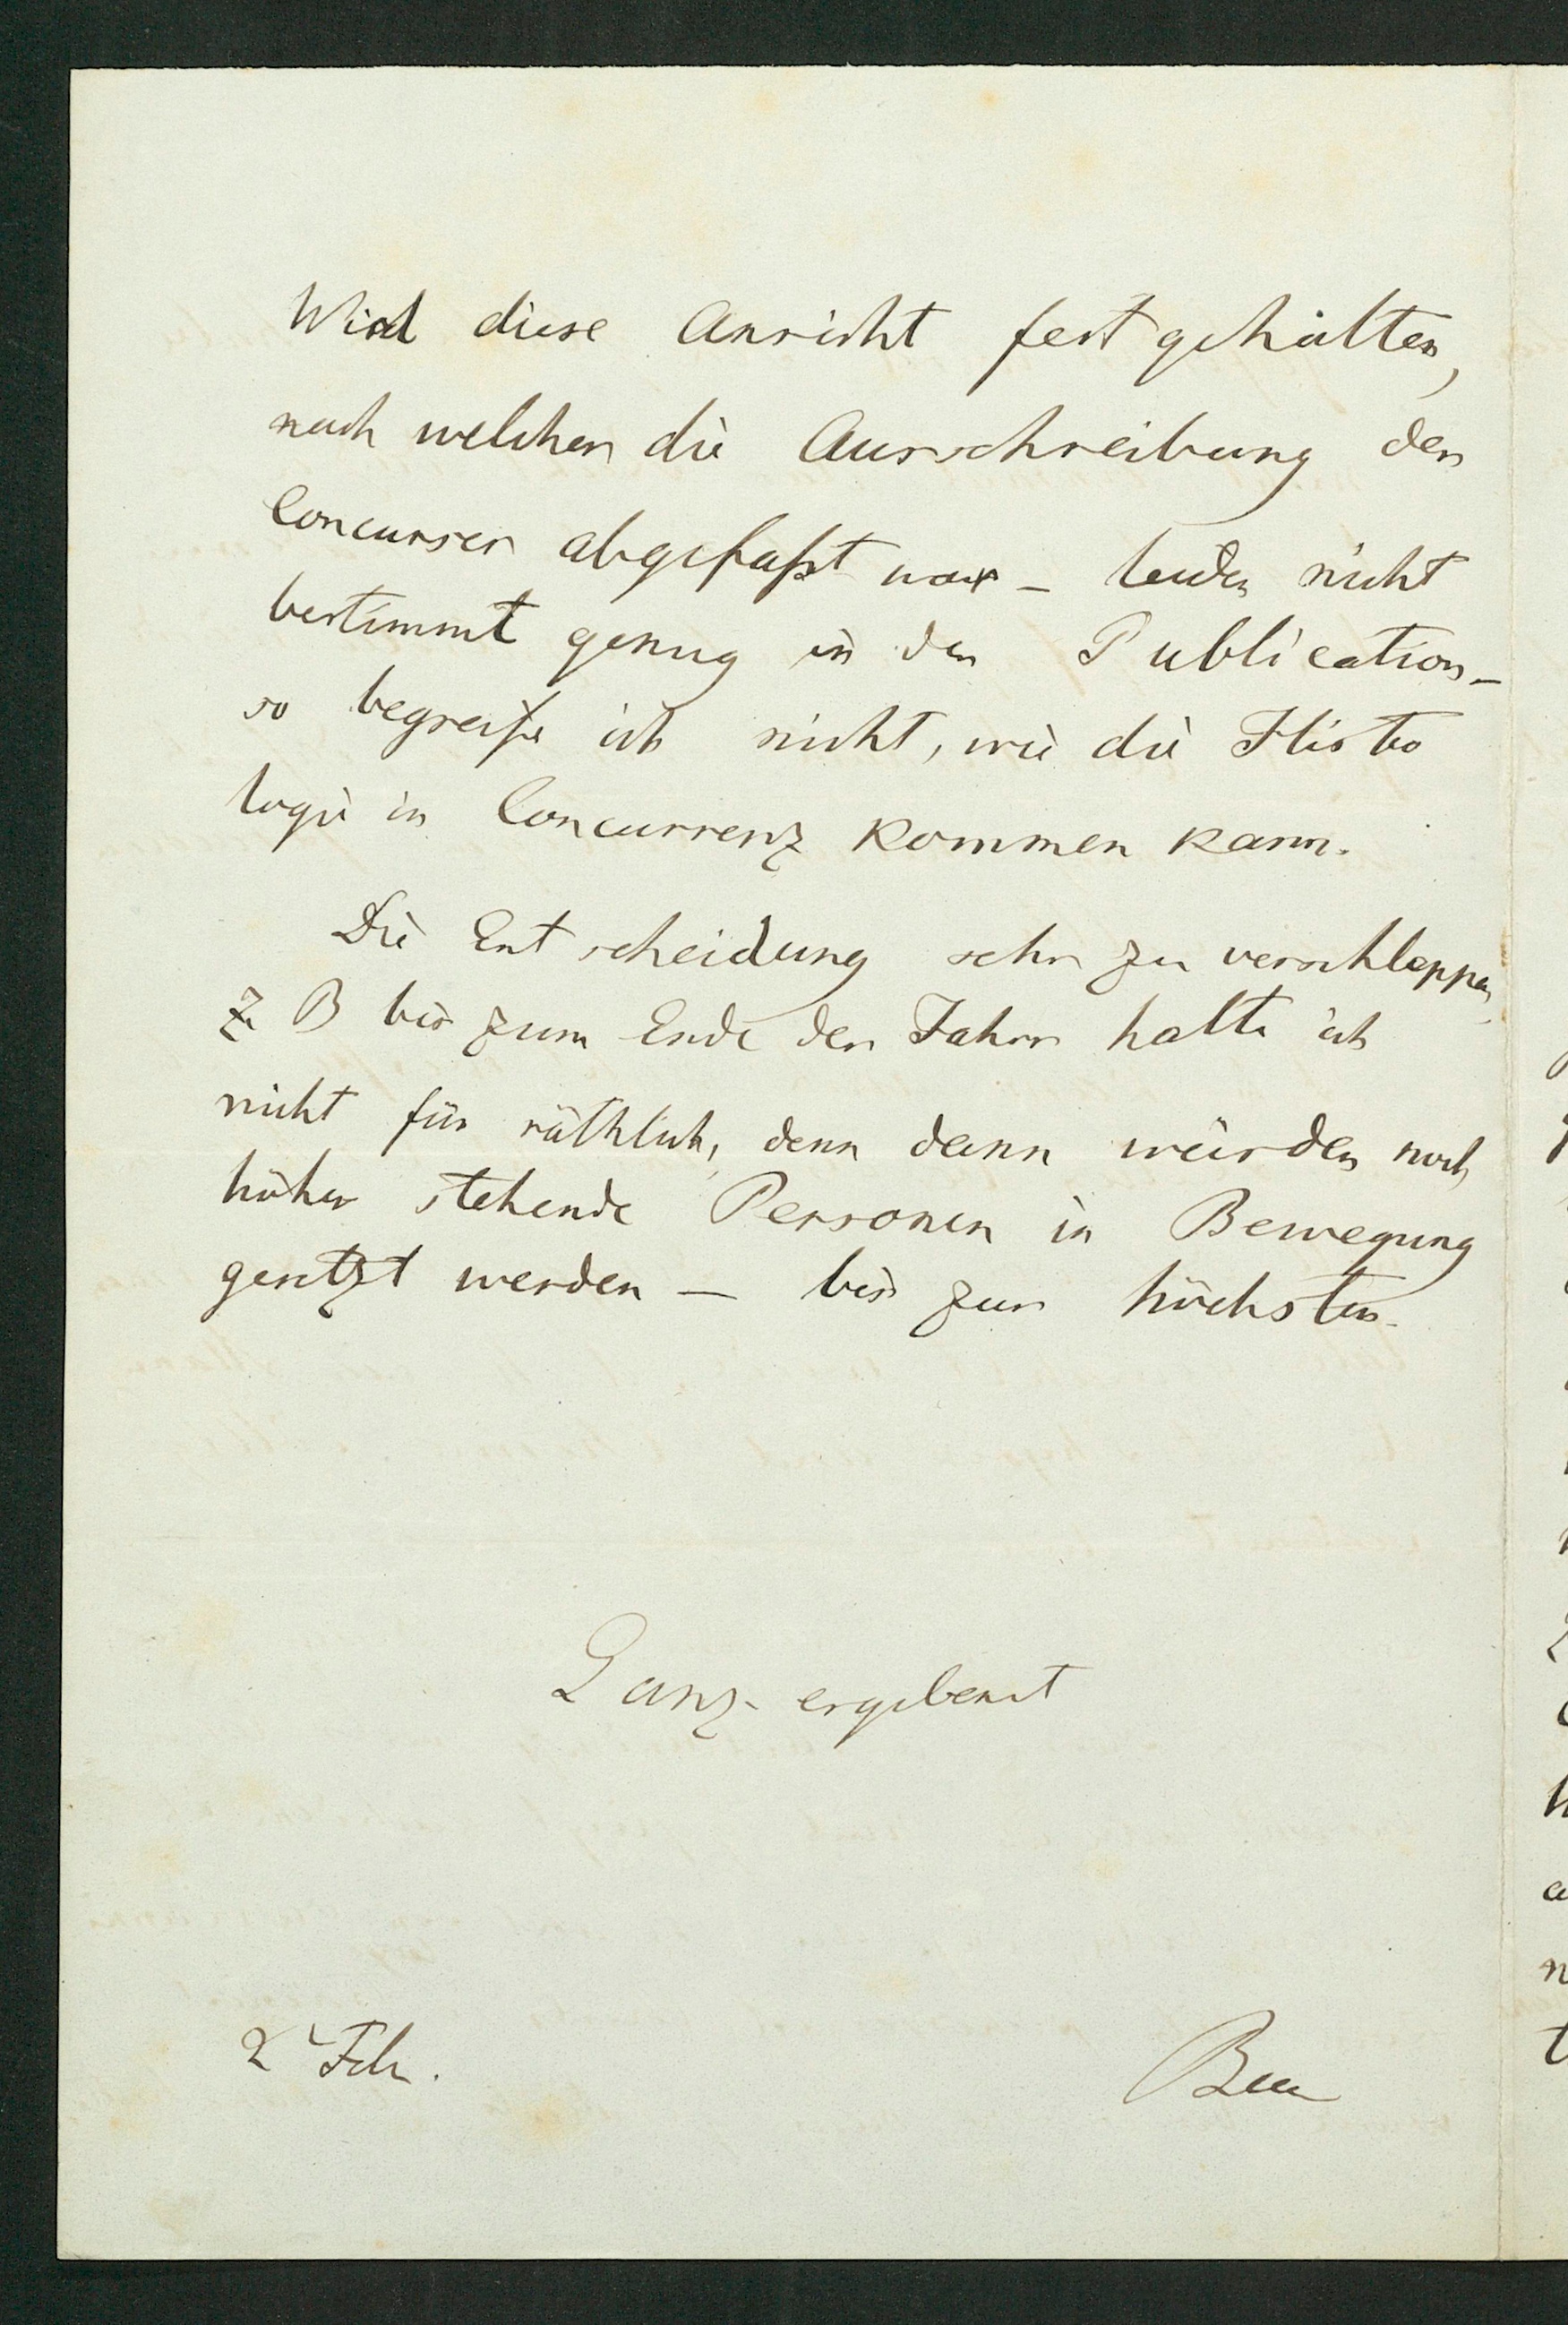 Wird diese Ansicht fest gehalten,
nach welcher die Ausschreibung des
Concurses abgefaßt war – leider nicht
bestimmt genug in der Publication –
so begreife ich nicht, wie die Histo
logie in Concurrenz kommen kann.
Die Entscheidung sehr zu verschleppen,
z. B bis zum Ende des Jahres halte ich
nicht für räthlich, denn dann würden noch
höher stehende Personen in Bewegung
gesetzt werden – bis zur höchsten.
Ganz ergebenst
2 Feb.
Baer